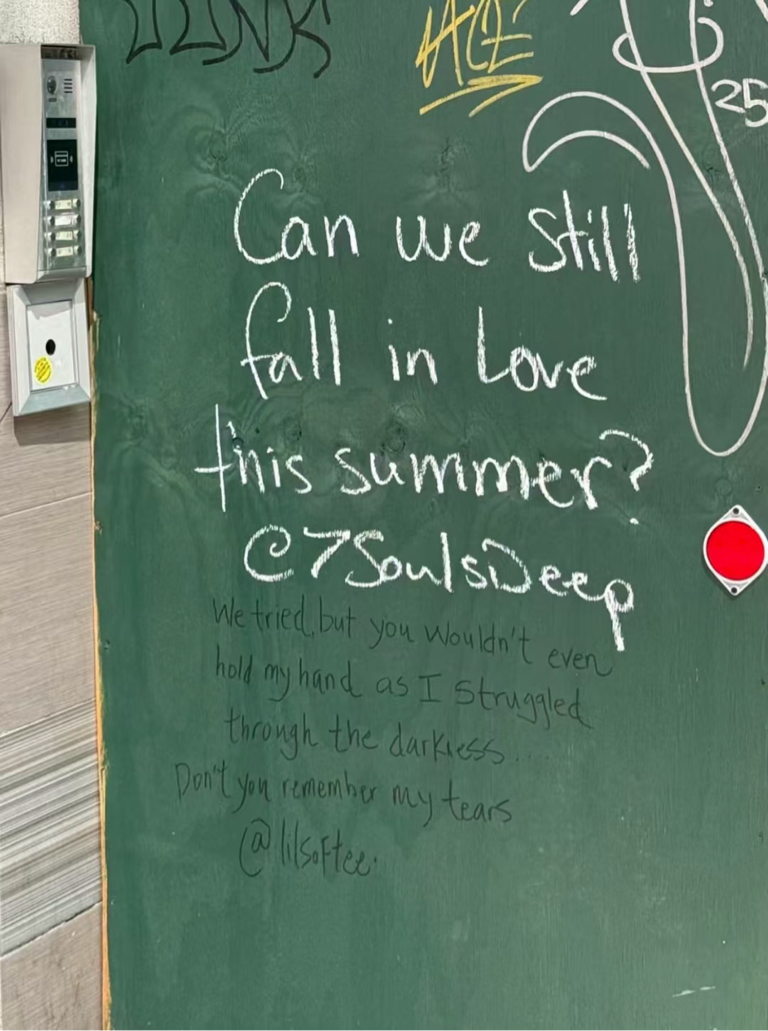 JUNK
ACE
25
Can we still
fall in Love
this summer?
@7SoulsDeep
We tried, but you wouldn't even
hold my hand as I struggled
through the darkness....
Don't you remember my tears
@lilsoftee.